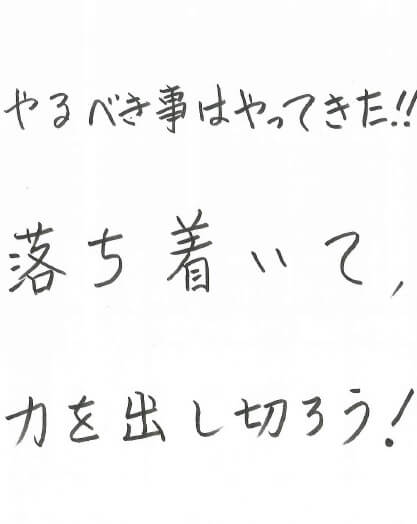 やるべき事はやってきた!!
落ち着いて,
力を出し切ろう!